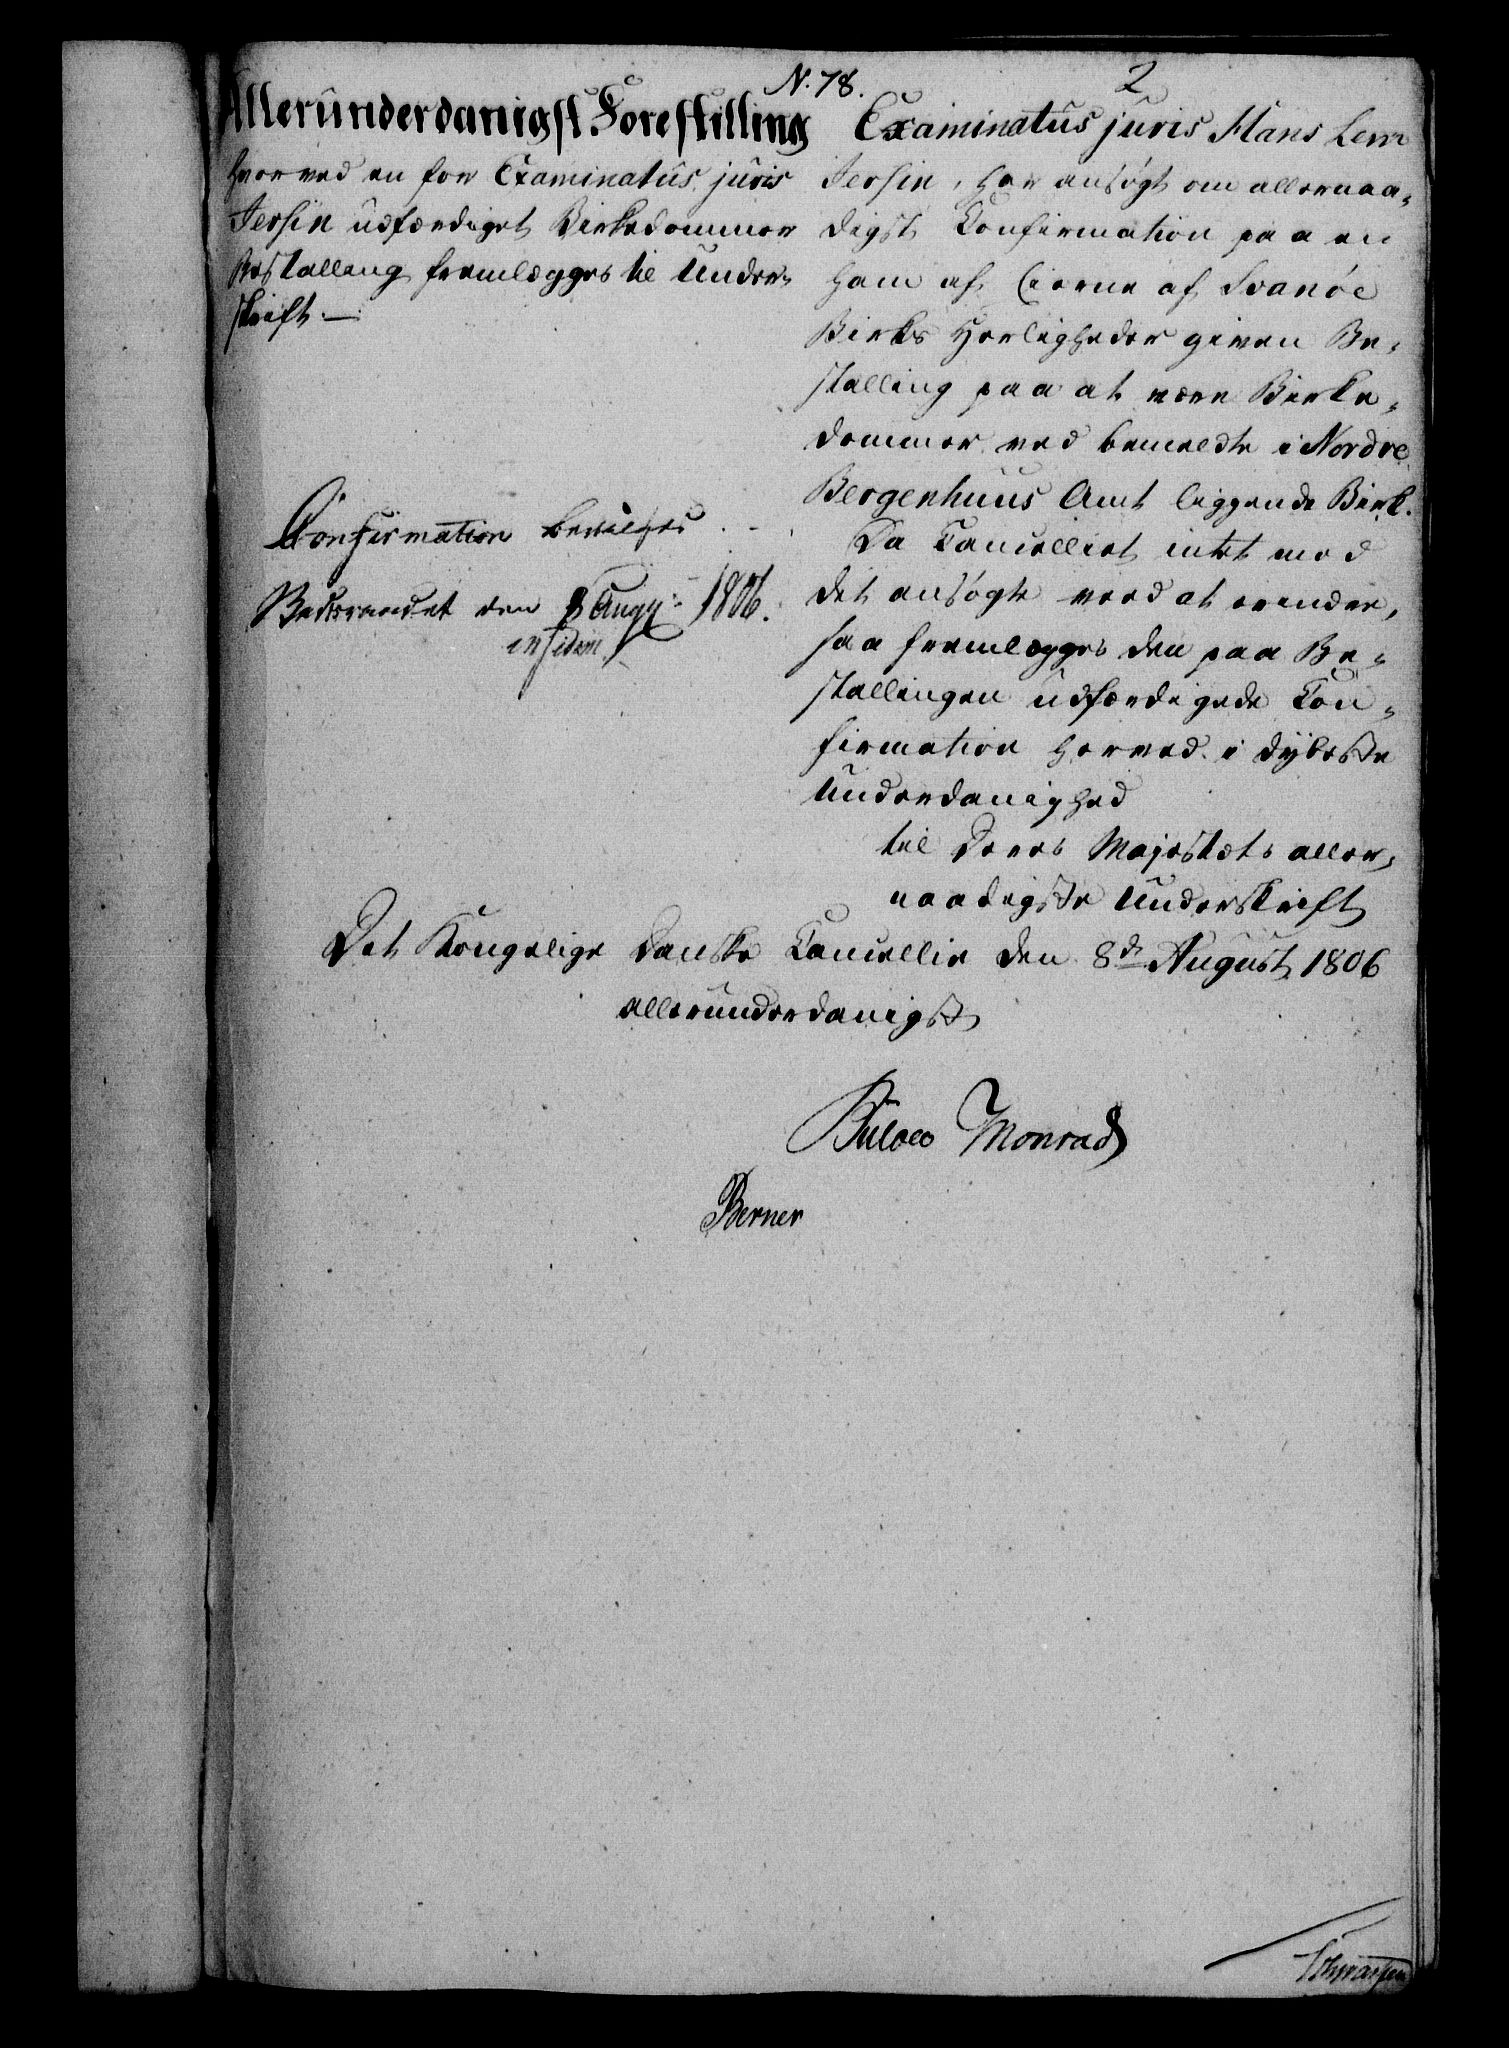 N. 78.
2
Allerunderdanigst Forestilling
hvorved en for Examinatus juris
Jersin udfærdiget Birkedommer
Bestalling fremlægges til Under-
skrift.
Confirmation bevilges
den 8 Aug: 1806.
Examinatus juris Hans Lem
Jersin, har ansøgt om allernaa-
digst Confirmation paa en
ham af Eierne af Svanøe
Birks Herligheder given Be-
stalling paa at være Birke-
dommer ved bemeldte i Nordre
Bergenhuus Amt liggende Birk.
Da Cancelliet intet mod
det ansøgte veed at erindre,
saa fremlægges den paa Be-
stallingen udfærdigede Con-
firmation herved i dybeste
Underdanighed
til Deres Majestæts aller-
naadigste Underskrift
Det Kongelige Danske Cancellie den 8d August 1806
allerunderdanigst
Bülow Monrad
Berner